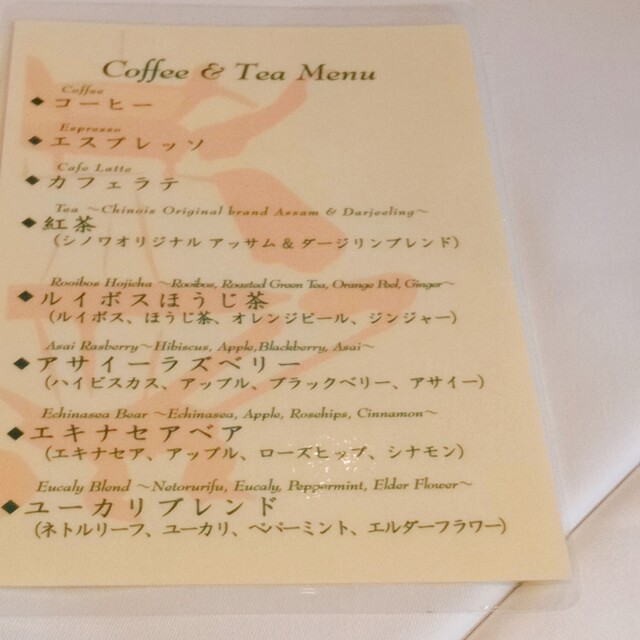 Coffee & Tea Menu
Coffee
◆コーヒー
Espresso
◆エスプレッソ
Cafe Latte
◆カフェラテ
Tea ～Chinois Original brand Assam & Darjeeling～
◆紅茶
(シノワオリジナル アッサム＆ダージリンブレンド)
Rooibos Hojicha ～Rooibos, Roasted Green Tea, Orange Peel, Ginger～
◆ルイボスほうじ茶
(ルイボス、ほうじ茶、オレンジピール、ジンジャー)
Asai Rasberry～Hibiscus, Apple,Blackberry, Asai～
◆アサイーラズベリー
(ハイビスカス、アップル、ブラックベリー、アサイー)
Echinasea Bear ～Echinasea, Apple, Rosehips, Cinnamon～
◆エキナセアベア
(エキナセア、アップル、ローズヒップ、シナモン)
Eucaly Blend ～Netorurifu, Eucaly, Peppermint, Elder Flower～
◆ユーカリブレンド
(ネトルリーフ、ユーカリ、ペパーミント、エルダーフラワー)